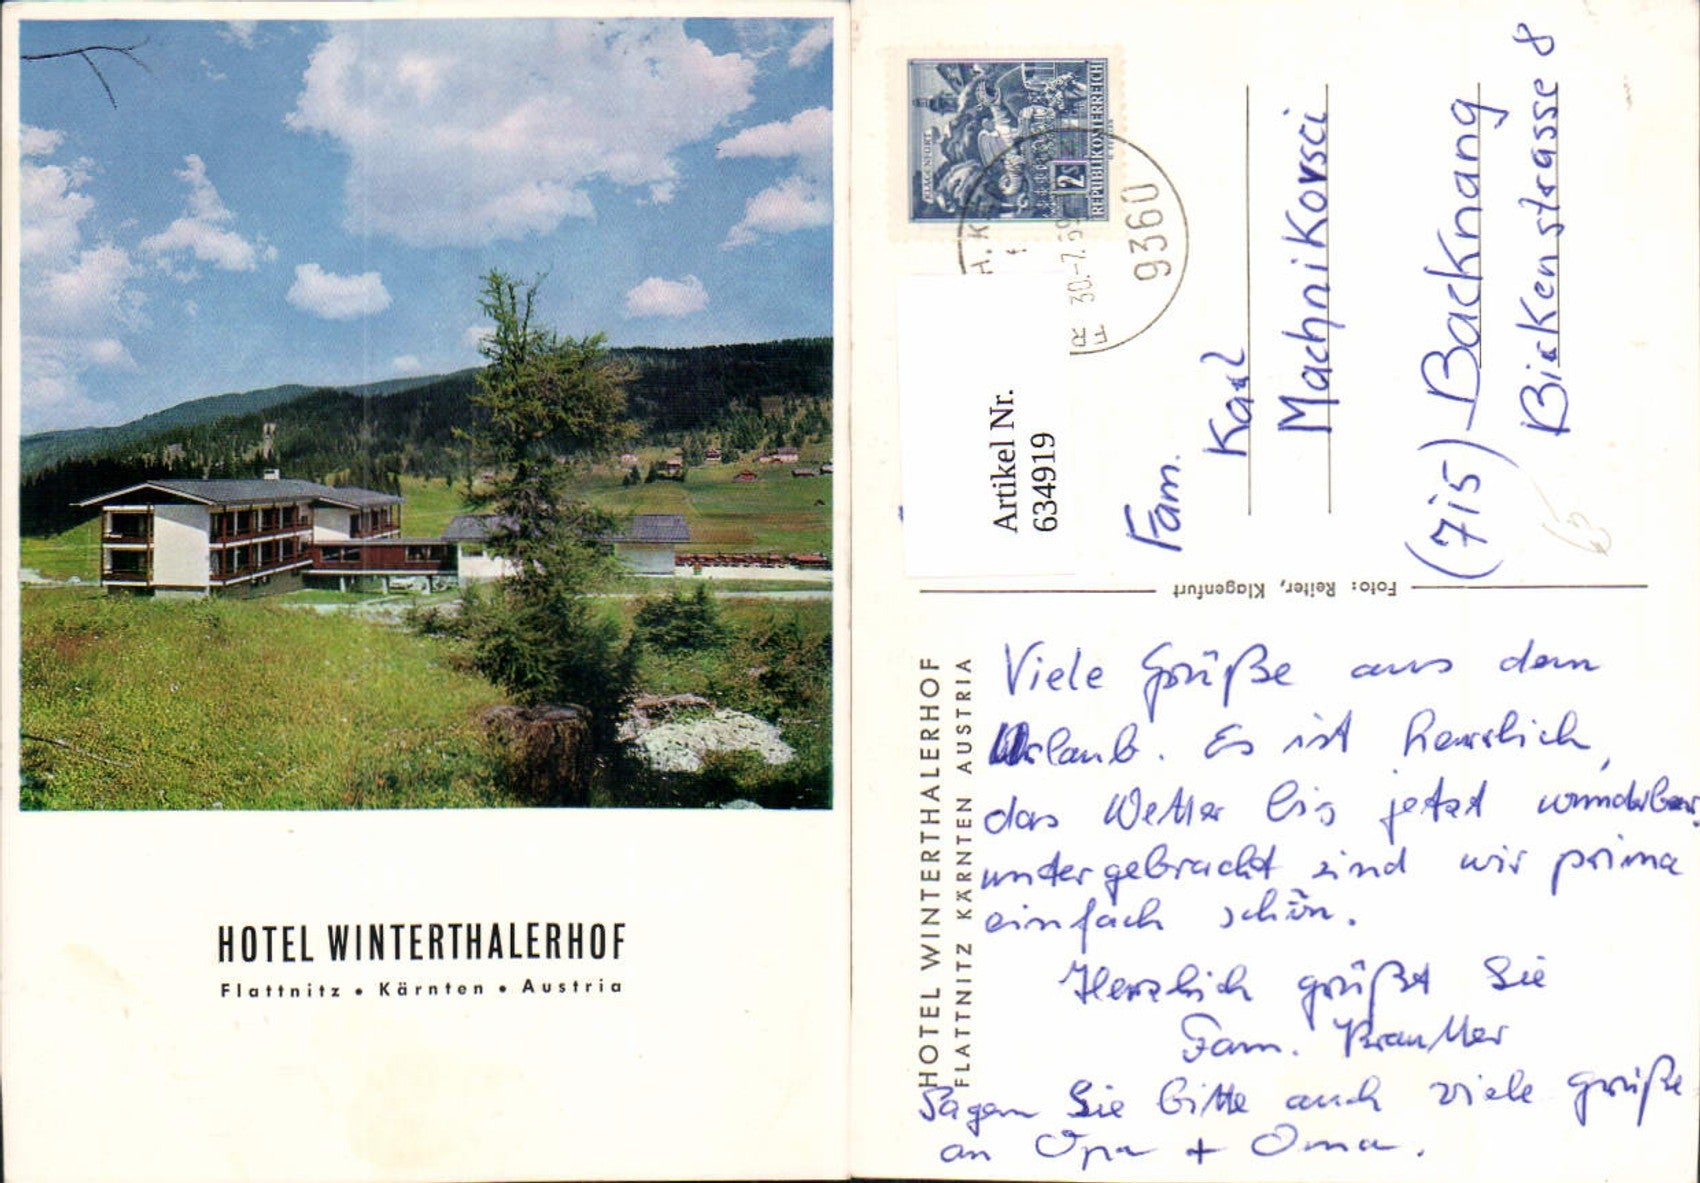 HOTEL WINTERTHALERHOF
Flattnitz • Kärnten • Austria
KLAGENFURT
2S
REPUBLIK ÖSTERREICH
30.-7.69
9360
Artikel Nr.
6349919
Fam.
Karl
Machnikorsci
(715) Backnang
Birkenstrasse 8
Foto: Reiter, Klagenfurt
HOTEL WINTERTHALERHOF
FLATTNITZ KÄRNTEN AUSTRIA
Viele Grüße aus dem
Urlaub. Es ist herrlich,
das Wetter bis jetzt wunderbar.
untergebracht sind wir prima
einfach schön.
Herzlich grüßt Sie
Fam.
Sagen Sie bitte auch viele Grüße
an Opa + Oma.